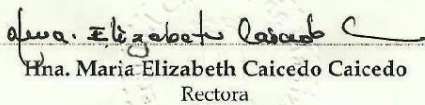 Hna. Elizabeth Caicedo C
Hna. Maria Elizabeth Caicedo Caicedo
Rectora